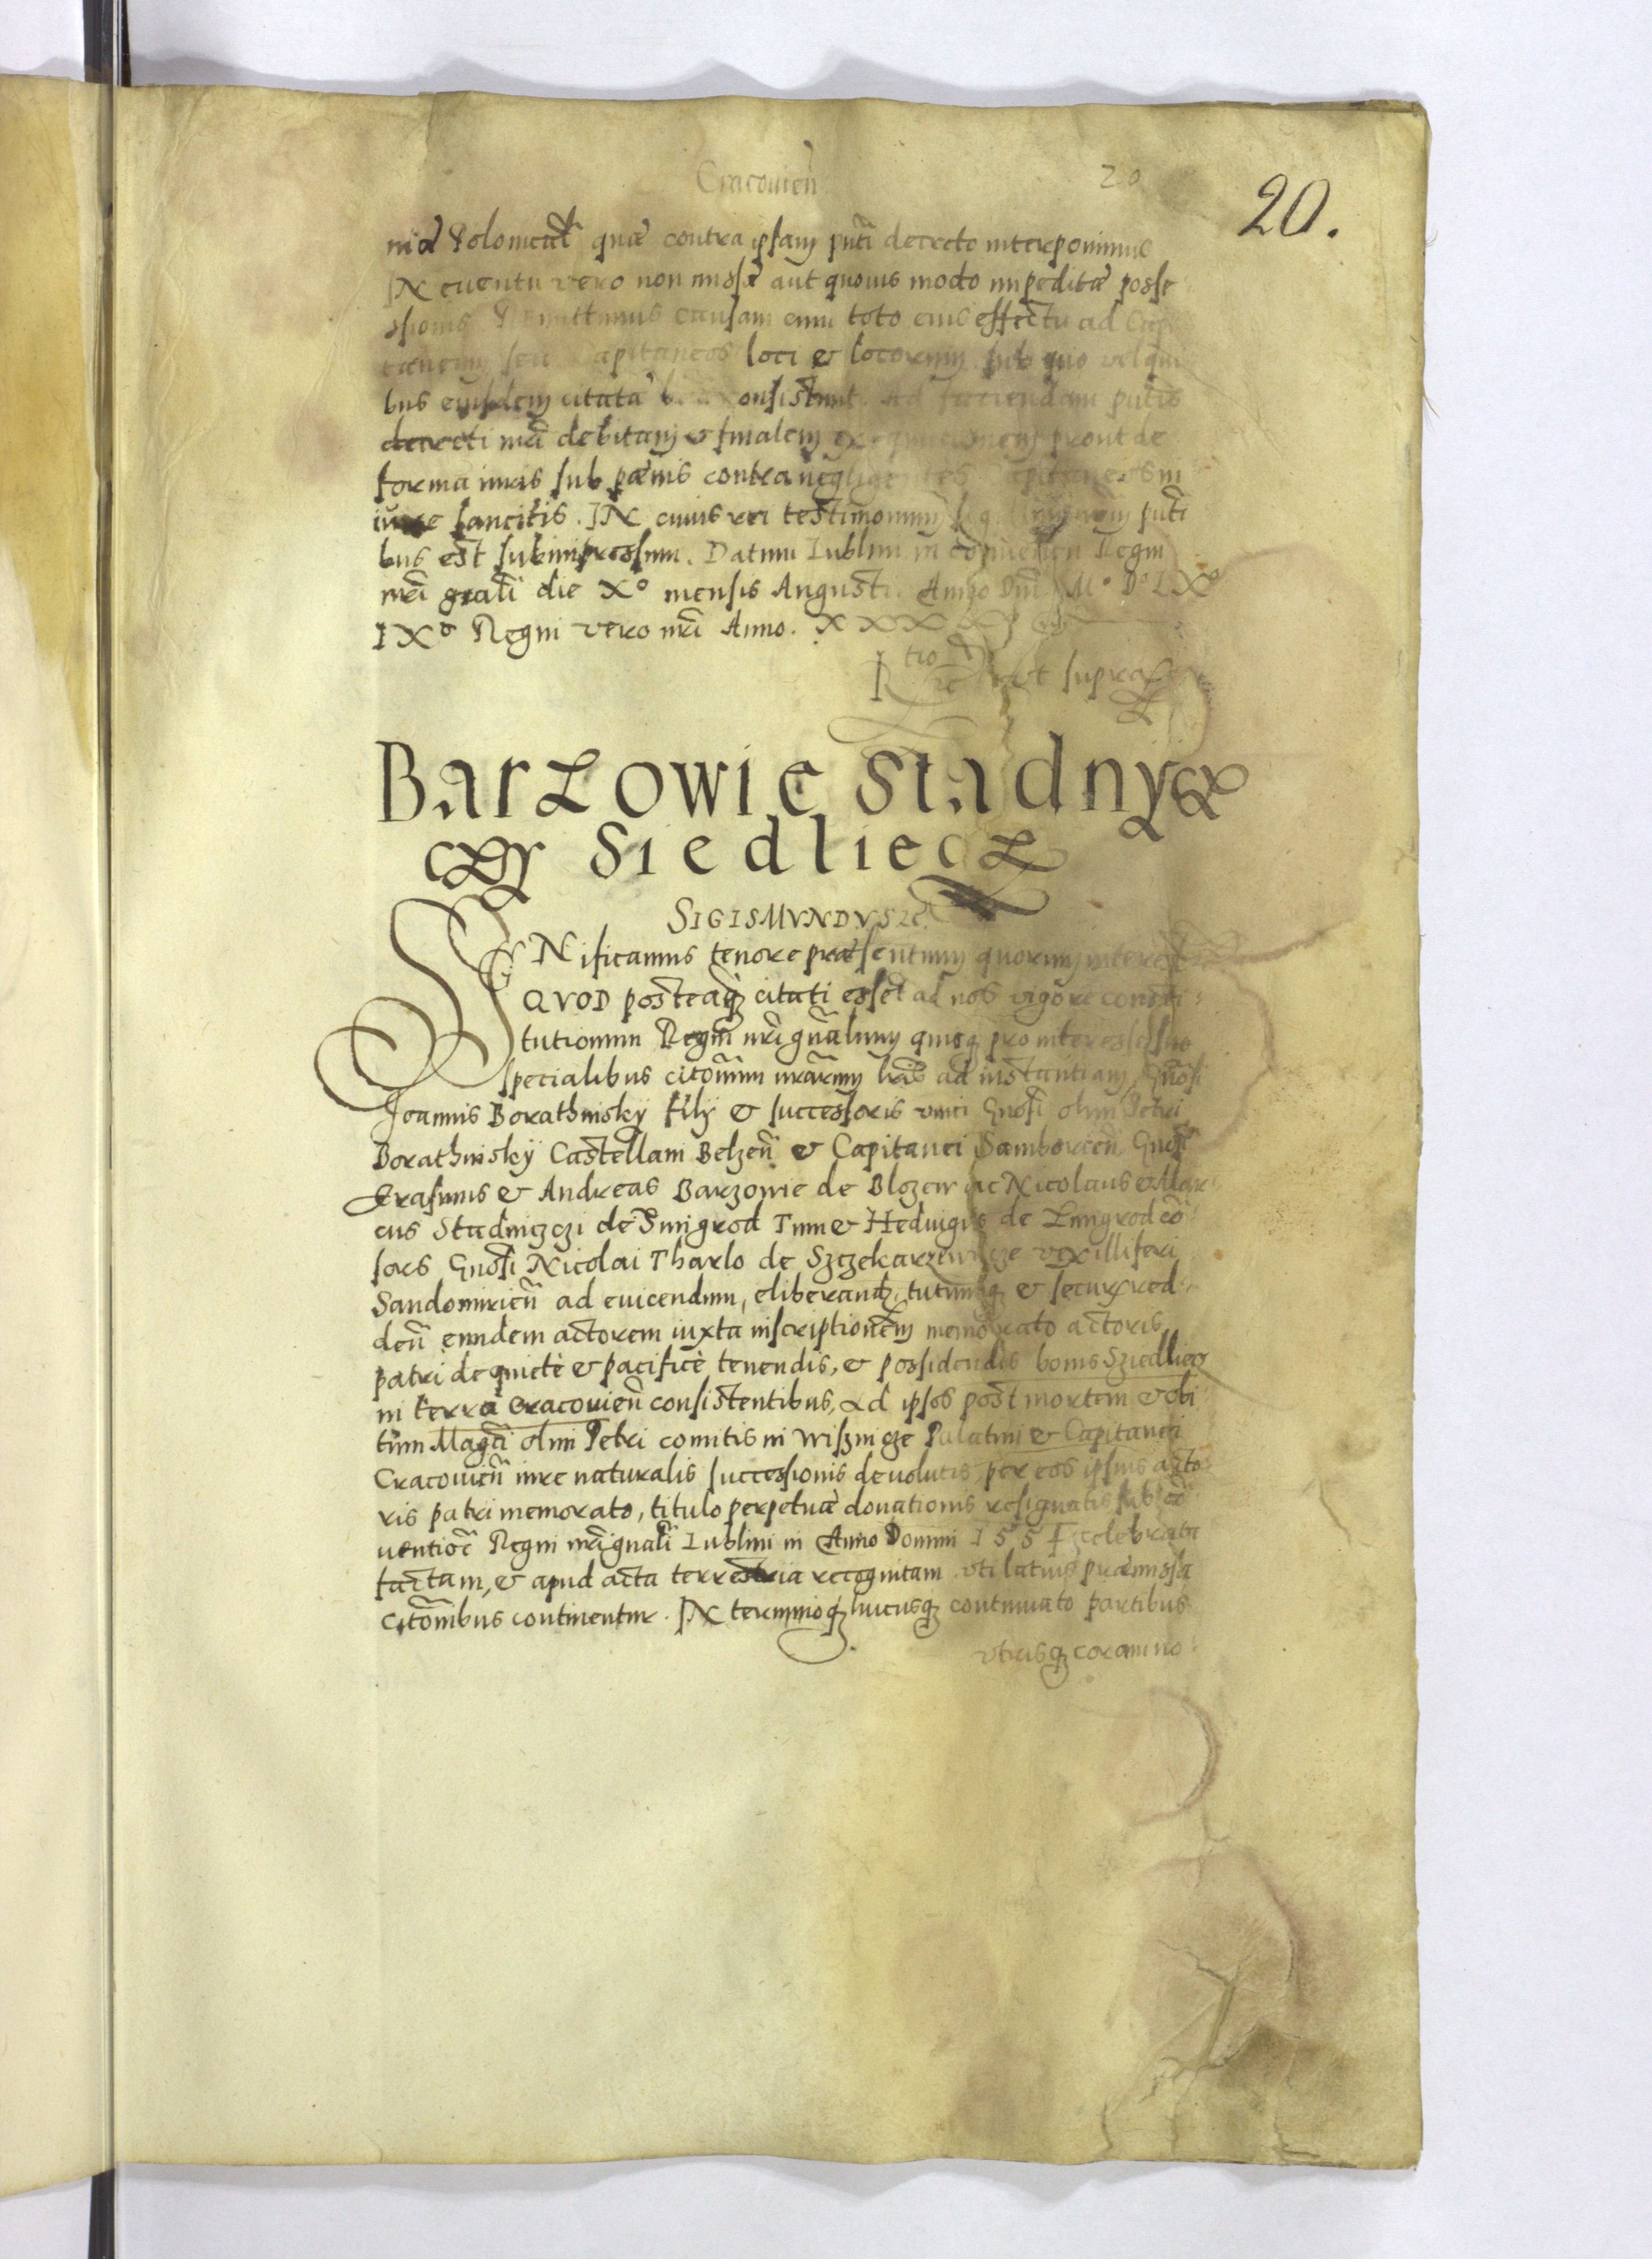 Cracouien̄
20
20.
niæ Polonicał quæ contra ipsam pn̄ti decreto interponimus
IN euentu vero non missæ aut quouis modo impeditæ posse
ssionis Remittimus causam cum toto eius effectu ad Capi
taneum seu Capitaneos loci & locorum sub quo vel qui
bus eiusdem citatæ bona consistunt. Ad faciendam pn̄tis
decreti nr̄i debitam & finalem exequutionem prout de
forma iuris sub pœnis contra negligentes Capitaneos in
iure sancitis. IN cuius rei testimonium sigillum nr̄m pn̄ti
bus est subimpressum. Datum Lublini in conuention Regni
nr̄i gnalī die Xº mensis Augusti. Anno Dn̄i Mº Dº LXº
IXº Regni vero nr̄i Anno. XXXX
Rtio ut supra
Barzowie Stadnycz
czy Siedliecz
SIGISMVNDVS zc̄
SIGNificamus tenore præsentium quorum interest
QVOD posteaq̨ citati essēt ad nos vigore consti:
tutionum Regni nr̄i gn̄alium quisq̨ pro interesse suo
specialibus citōnum nr̄arum lr̄is ad instantiam Gn̄osi
Joannis Borathinskÿ filÿ & successoris vnici Gn̄osi olim Petri
Borathinskÿ Castellani Belzen̄ & Capitanei Samborien̄ Gn̄osi
Erasmus & Andreas Barzowie de Blozew ac Nicolaus & Mar:
cus Stadniczczi de Zmigrod Tum & Heduigis de Zmigrod cō
sors Gn̄osi Nicolai Tharlo de Szczekarzewicze vexilliferi
Sandomirien̄ ad euicendum, eliberand, tutumq̨ & secur red:
den̄ eundem actorem iuxta inscriptionem memorato actoris
patri de quietè & pacificè tenendis, & possidendis bonis Sziedliecz
in terra Cracouien̄ consistentibus, Ad ipsos post mortem & obi
tum Magci olim Petri comitis in Wisznicze Palatini & Capitanei
Cracouien̄ iure naturalis successionis deuolutis per eos ipsius acto
ris patri memorato, titulo perpetuæ donationis resignatis sub cō
uentiōe Regni nr̄i gnalī Lublini in Anno Domini 1554 celebrata
factam, & apud acta terrestria recognitam. vti latius præmissa
citōnibus continentur. IN terminoq̨ hucusq̨ continuato partibus
vtrisq̨ coram no: